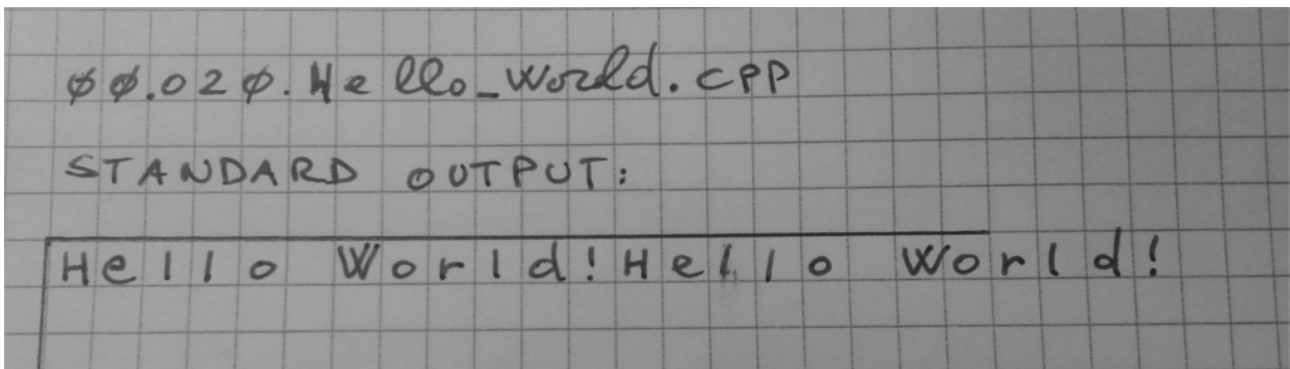 00.020.Hello_World.cpp
STANDARD OUTPUT:
Hello World!Hello World!